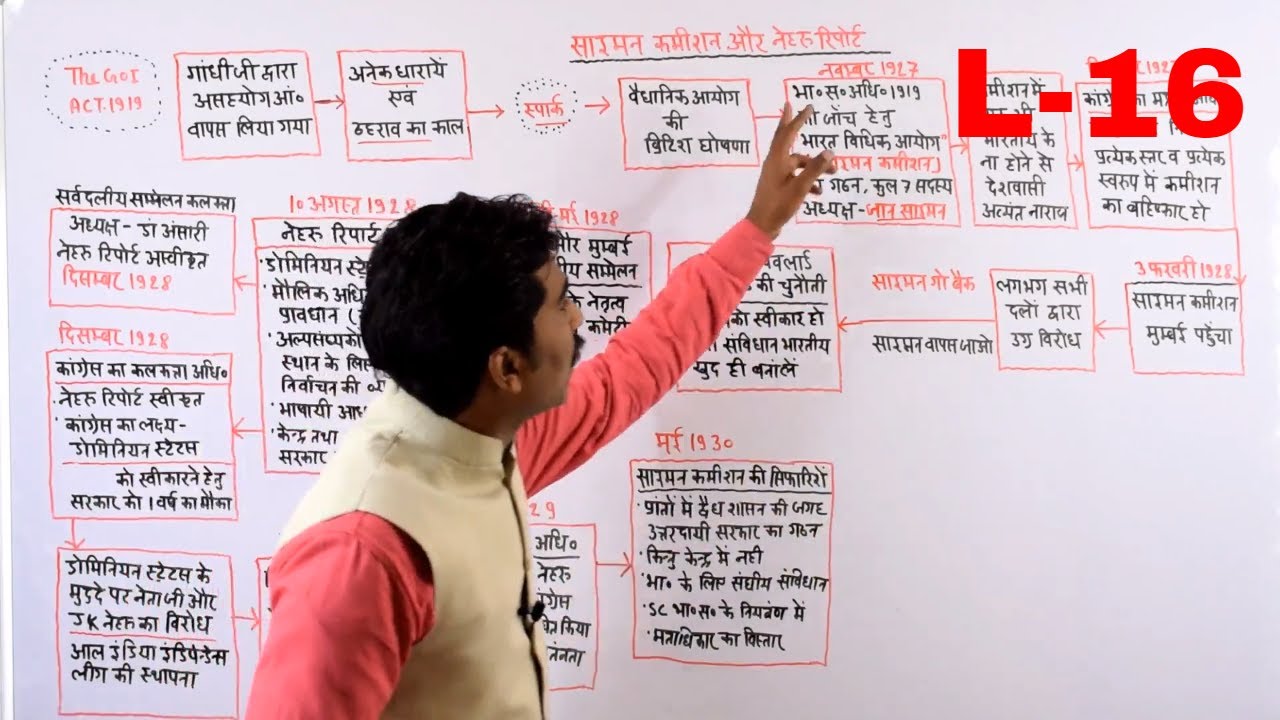 साइमन कमीशन और नेहरु रिपोर्ट
L-16
The GOI
ACT.1919
गांधी जी द्वारा
असहयोग आं०
वापस लिया गया
अनेक धारायें
एवं
ठहराव का काल
स्पार्क
वैधानिक आयोग
की
ब्रिटिश घोषणा
नवम्बर 1927
भा०स०अधि०1919
जाँच हेतु
भारत विधिक आयोग"
साइमन कमीशन)
गठन, कुल 7 सदस्य
अध्यक्ष-जान साइमन
भारतीय के
ना होने से
देशवासी
अत्यंत नाराज
प्रत्येक स्तर व प्रत्येक
स्वरुप में कमीशन
का बहिष्कार हो
3 फरवरी 1928
साइमन कमीशन
मुम्बई पहुँचा
लगभग सभी
दलों द्वारा
उग्र विरोध
साइमन गो बैक
साइमन वापस जाओ
की चुनौती
स्वीकार हो
संविधान भारतीय
खुद ही बनालें
मई 1928
और मुम्बई
सम्मेलन
के नेतृत्व
कमेटी
10 अगस्त 1928
नेहरु रिपोर्ट
डोमिनियन स्टे
मौलिक अधि
प्रावधान (
अल्पसंख्यको
स्थान के लिए
निर्वाचन की
भाषायी आधा
केन्द्र तथा
सरकार
सर्वदलीय सम्मेलन कलकत्ता
अध्यक्ष - डा अंसारी
नेहरु रिपोर्ट अस्वीकृत
दिसम्बर 1928
दिसम्बर 1928
कांग्रेस का कलकत्ता अधि०
· नेहरु रिपोर्ट स्वीकृत
· कांग्रेस का लक्ष्य-
डोमिनियन स्टेटस
को स्वीकारने हेतु
सरकार को 1 वर्ष का मौका
डोमिनियन स्टेटस के
मुद्दे पर नेताजी और
JK नेहरु का विरोध
आल इंडिया इंडिपेन्डेंस
लीग की स्थापना
29
अधि०
नेहरु
किया
मई 1930
साइमन कमीशन की सिफारिशें
· प्रांतों में द्वैध शासन की जगह
उत्तरदायी सरकार का गठन
· किन्तु केन्द्र में नही
· भा० के लिए संघीय संविधान
· SC भा०स० के नियंत्रण में
· मताधिकार का विस्तार